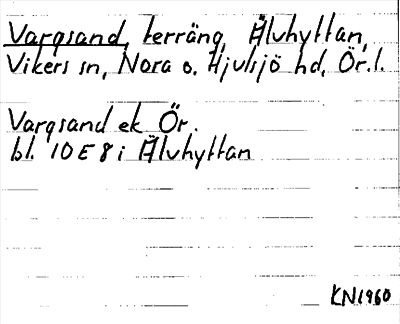 Vargsand, terräng, Älvhyttan,
Vikers sn, Nora o. Hjulsjö hd, Ör. l.
Vargsand ek Ör.
bl. 10 E 8 i Älvhyttan
KN1960